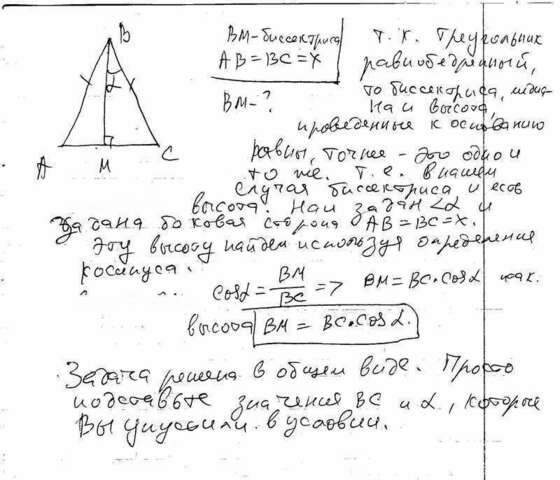 B
α
A
M
C
BM - биссектриса
AB = BC = x
BM - ?
т.к. треугольник
равнобедренный,
то биссектриса, медиа-
на и высота,
проведенные к основанию
равны, точнее - это одно и
то же. Т.е. в нашем
случае биссектриса и есть
высота. Нам задан ∠α и
задана боковая сторона AB = BC = x.
Эту высоту найдем используя определение
косинуса.
cosα = BM/BC => BM = BC·cosα
высота BM = BC·cosα.
Задача решена в общем виде. Просто
подставьте значения BC и α, которые
Вы упустили в условии.